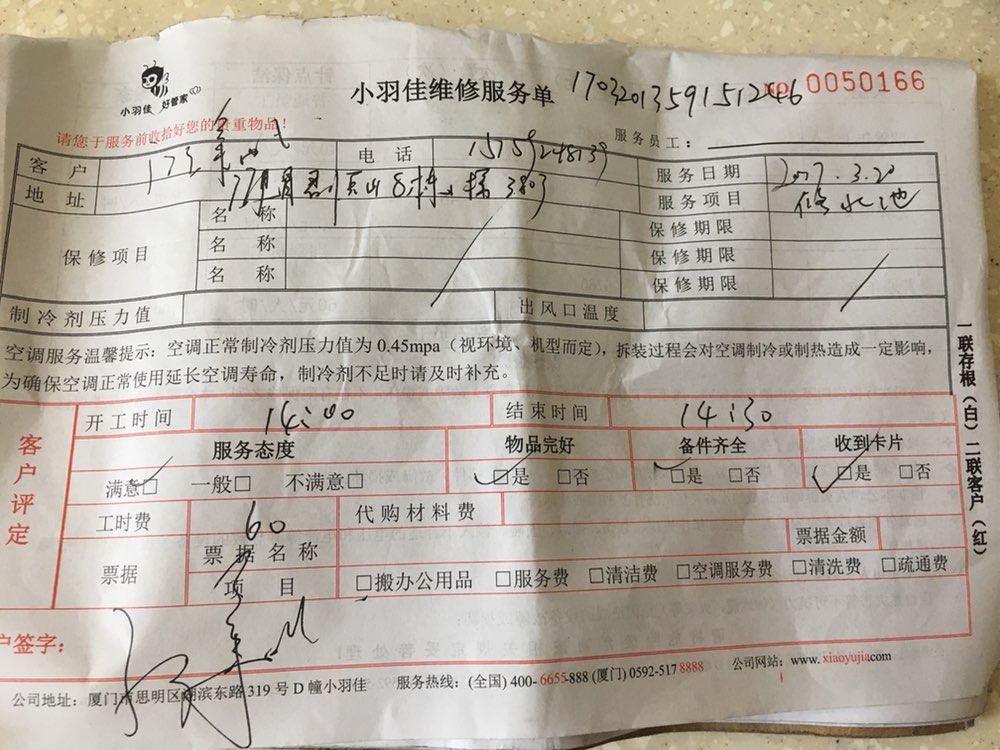 小羽佳 好管家
小羽佳维修服务单 1703201359151246 NO. 0050166
请您于服务前收拾好您的贵重物品！ 服务员工：
客户 电话 服务日期 2017.3.20
地址 服务项目 修水池
保修项目 名称 保修期限
名称 保修期限
名称 保修期限
制冷剂压力值 出风口温度
空调服务温馨提示：空调正常制冷剂压力值为 0.45mpa（视环境、机型而定），拆装过程会对空调制冷或制热造成一定影响，
为确保空调正常使用延长空调寿命，制冷剂不足时请及时补充。
一联存根（白）二联客户（红）
客户评定
开工时间 14:00 结束时间 14:30
服务态度 物品完好 备件齐全 收到卡片
满意□ 一般□ 不满意□ □是 □否 □是 □否 □是 □否
工时费 60 代购材料费
票据 票据名称 票据金额
项目 □搬办公用品 □服务费 □清洁费 □空调服务费 □清洗费 □疏通费
户签字：
公司地址：厦门市思明区湖滨东路 319 号 D 幢小羽佳 服务热线：(全国) 400-6655-888 (厦门) 0592-517 8888 公司网站：www.xiaoyujia.com